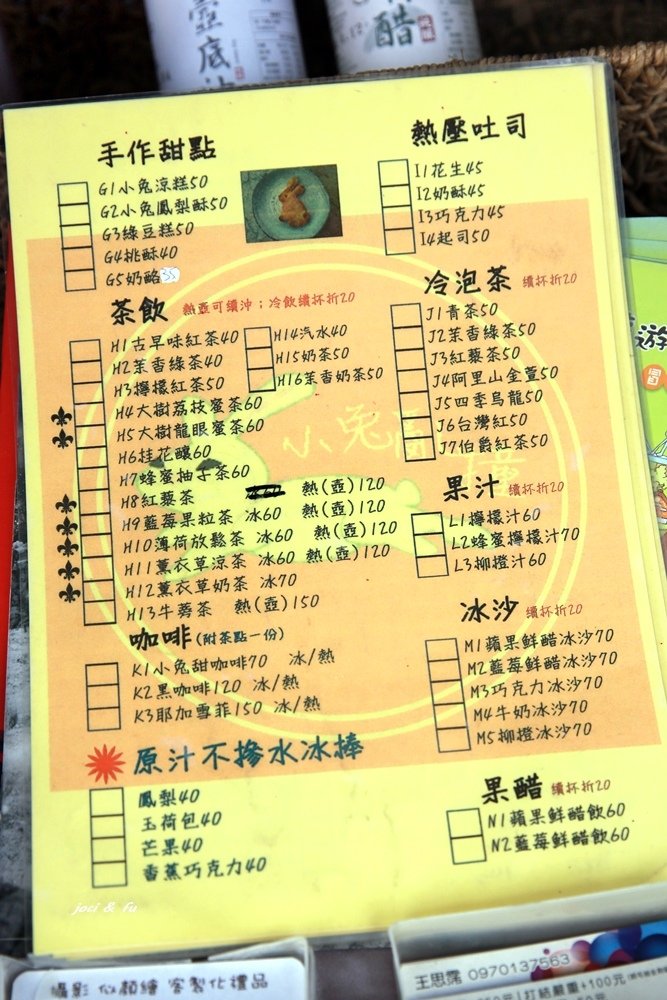 手作甜點
G1小兔涼糕50
G2小兔鳳梨酥50
G3綠豆糕50
G4桃酥40
G5奶酪35
熱壓吐司
I1花生45
I2奶酥45
I3巧克力45
I4起司50
茶飲 熱壺可續沖；冷飲續杯折20
H1古早味紅茶40
H2茉香綠茶40
H3檸檬紅茶50
H4大樹荔枝蜜茶60
H5大樹龍眼蜜茶60
H6桂花釀60
H7蜂蜜柚子茶60
H8紅藜茶 熱(壺)120
H9藍莓果粒茶 冰60 熱(壺)120
H10薄荷放鬆茶 冰60 熱(壺)120
H11薰衣草涼茶 冰60 熱(壺)120
H12薰衣草奶茶 冰70
H13牛蒡茶 熱(壺)150
H14汽水40
H15奶茶50
H16茉香奶茶50
冷泡茶 續杯折20
J1青茶50
J2茉香綠茶50
J3紅藜茶50
J4阿里山金萱50
J5四季烏龍50
J6台灣紅50
J7伯爵紅茶50
果汁 續杯折20
L1檸檬汁60
L2蜂蜜檸檬汁70
L3柳橙汁60
咖啡(附茶點一份)
K1小兔甜咖啡70 冰/熱
K2黑咖啡120 冰/熱
K3耶加雪菲150 冰/熱
冰沙 續杯折20
M1蘋果鮮醋冰沙70
M2藍莓鮮醋冰沙70
M3巧克力冰沙70
M4牛奶冰沙70
M5柳橙冰沙70
原汁不摻水冰棒
鳳梨40
玉荷包40
芒果40
香蕉巧克力40
果醋 續杯折20
N1蘋果鮮醋飲60
N2藍莓鮮醋飲60
小兔
joci & fu
攝影 似顏繪 客製化禮品
王思霈 0970137563
打結嚴重+100元
壺底油
醋